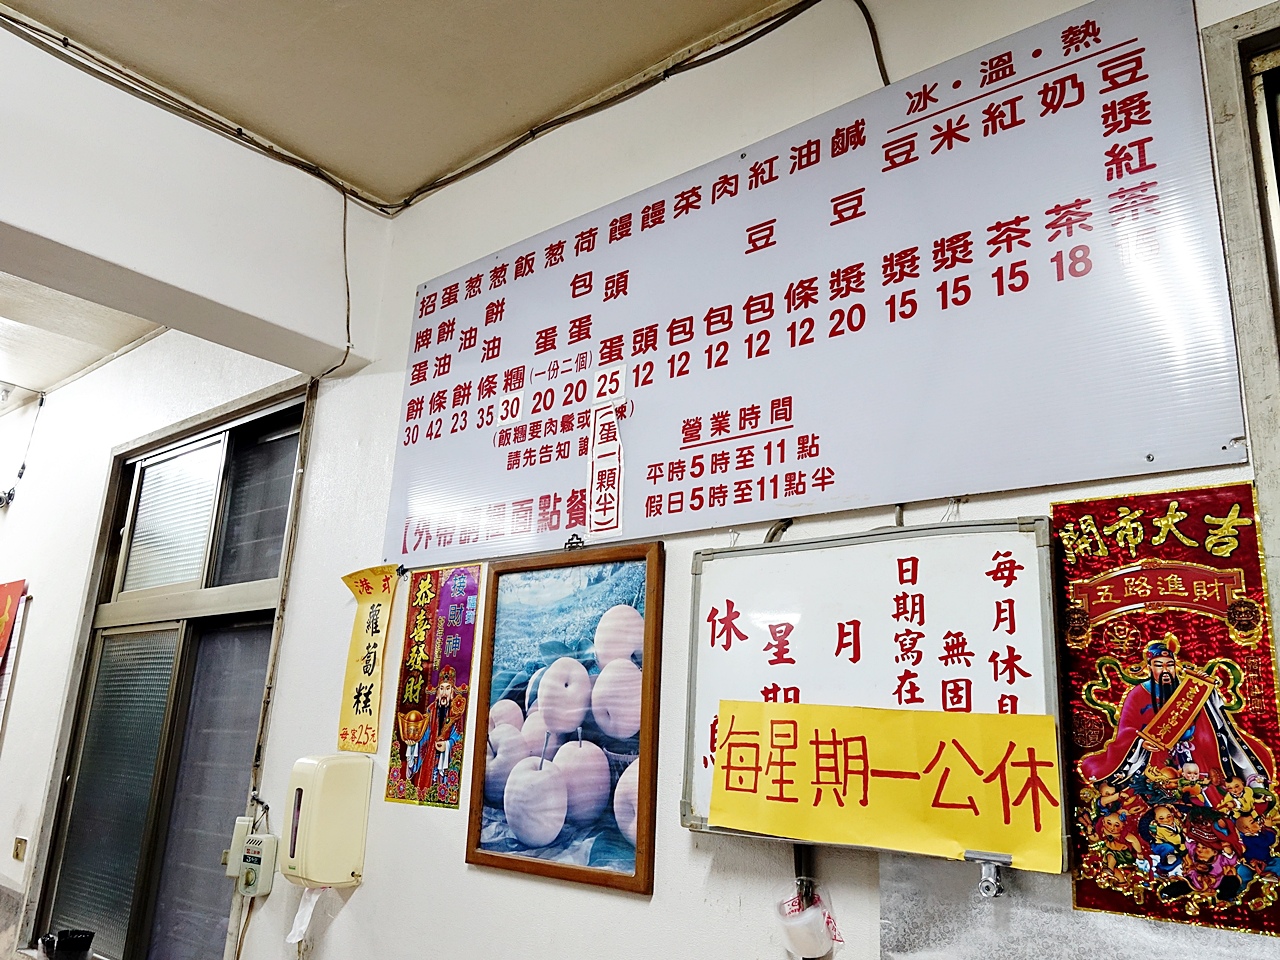 冰・溫・熱
豆漿紅茶
奶茶 18
紅茶 15
米漿 15
豆漿 15
鹹豆漿 20
油條 12
紅豆包 12
肉包 12
菜包 12
饅頭 12
饅頭蛋 25
荷包蛋 20
葱蛋 20
(一份二個)
飯糰 30
葱餅油條 35
葱油餅 23
蛋餅油條 42
招牌蛋餅 30
(蛋一顆半)
(飯糰要肉鬆或辣)
請先告知 謝
營業時間
平時5時至11點
假日5時至11點半
【外帶請裡面點餐
港式
蘿蔔糕
每客25元
接財神
恭喜發財
每月休息
無固
日期寫在
月
星期
休
每星期一公休
開市大吉
五路進財